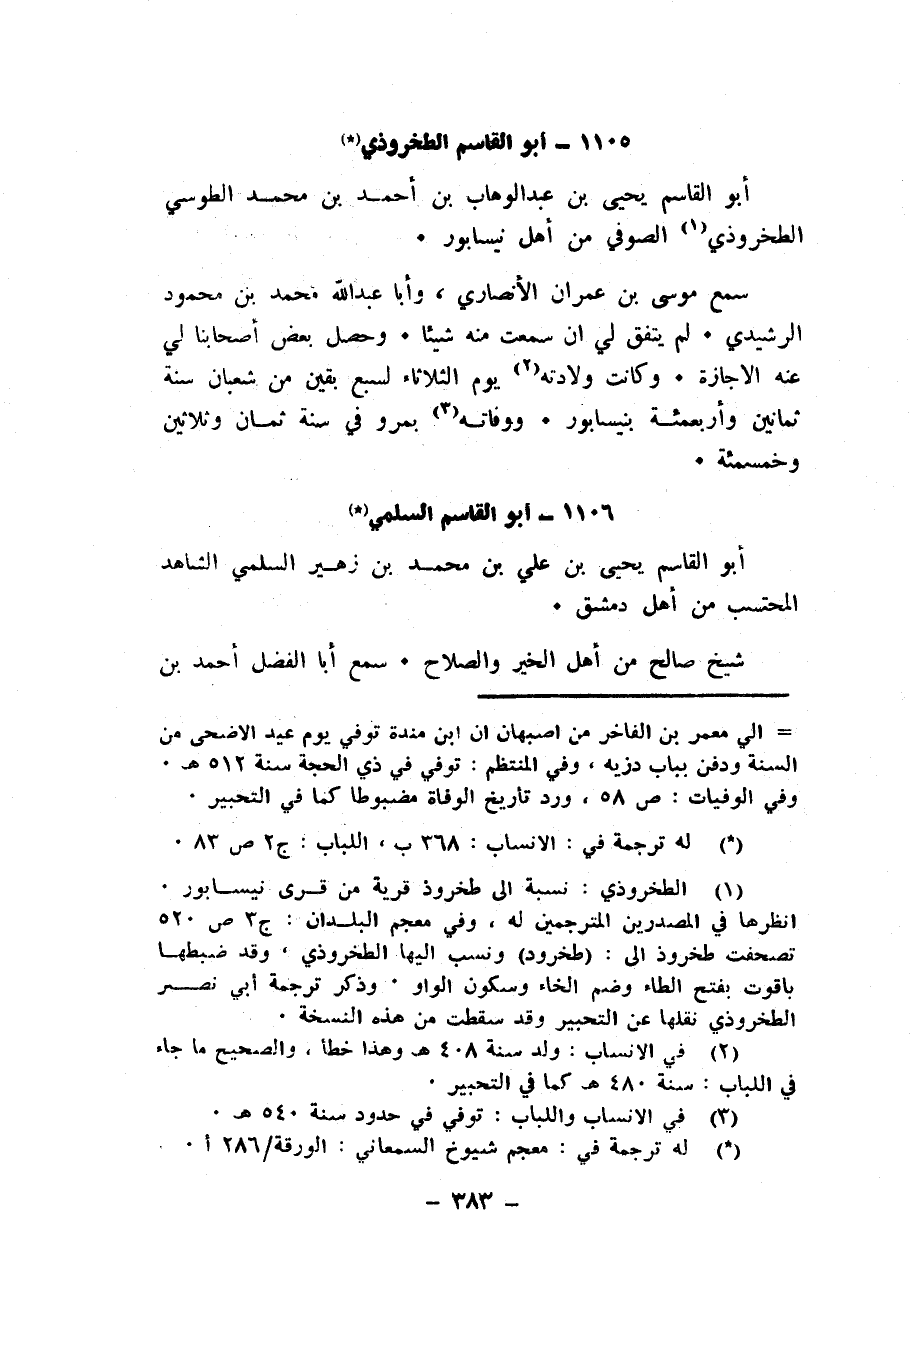 ١١٠٥ ـ أبو القاسم الطخروذي(*)
أبو القاسم يحيى بن عبدالوهاب بن أحمـد بن محمـد الطوسي
الطخروذي(١) الصوفي من أهل نيسابور ٠
سمع موسى بن عمران الأنصاري ، وأبا عبدالله محمد بن محمود
الرشيدي ٠ لم يتفق لي ان سمعت منه شيئا ٠ وحصل بعض أصحابنا لي
عنه الاجازة ٠ وكانت ولادته(٢) يوم الثلاثاء لسبع بقين من شعبان سنة
ثمانين وأربعمئـة بنيسابور ٠ ووفاتـه(٣) بمرو في سنة ثمـان وثلاثين
وخمسمئة ٠
١١٠٦ ـ أبو القاسم السلمي(*)
أبو القاسم يحيى بن علي بن محمـد بن زهـير السلمي الشاهد
المحتسب من أهل دمشق ٠
شيخ صالح من أهل الخير والصلاح ٠ سمع أبا الفضل أحمد بن
= الي معمر بن الفاخر من اصبهان ان ابن مندة توفي يوم عيد الاضحى من
السنة ودفن بباب دزيه ، وفي المنتظم : توفي في ذي الحجة سنة ٥١٢ هـ ٠
وفي الوفيات : ص ٥٨ ، ورد تأريخ الوفاة مضبوطا كما في التحبير ٠
(*) له ترجمة في : الانساب : ٣٦٨ ب ، اللباب : ج٢ ص ٨٣ ٠
(١) الطخروذي : نسبة الى طخروذ قرية من قـرى نيسـابور ٠
انظرها في المصدرين المترجمين له ، وفي معجم البلـدان : ج٣ ص ٥٢٠
تصحفت طخروذ الى : (طخرود) ونسب اليها الطخروذي ، وقد ضبطهـا
ياقوت بفتح الطاء وضم الخاء وسكون الواو ٠ وذكر ترجمة أبي نصـر
الطخروذي نقلها عن التحبير وقد سقطت من هذه النسخة ٠
(٢) في الانساب : ولد سنة ٤٠٨ هـ وهذا خطأ ، والصحيح ما جاء
في اللباب : سنة ٤٨٠ هـ كما في التحبير ٠
(٣) في الانساب واللباب : توفي في حدود سنة ٥٤٠ هـ ٠
(*) له ترجمة في : معجم شيوخ السمعاني : الورقة/٢٨٦ أ ٠
ـ ٣٨٣ ـ